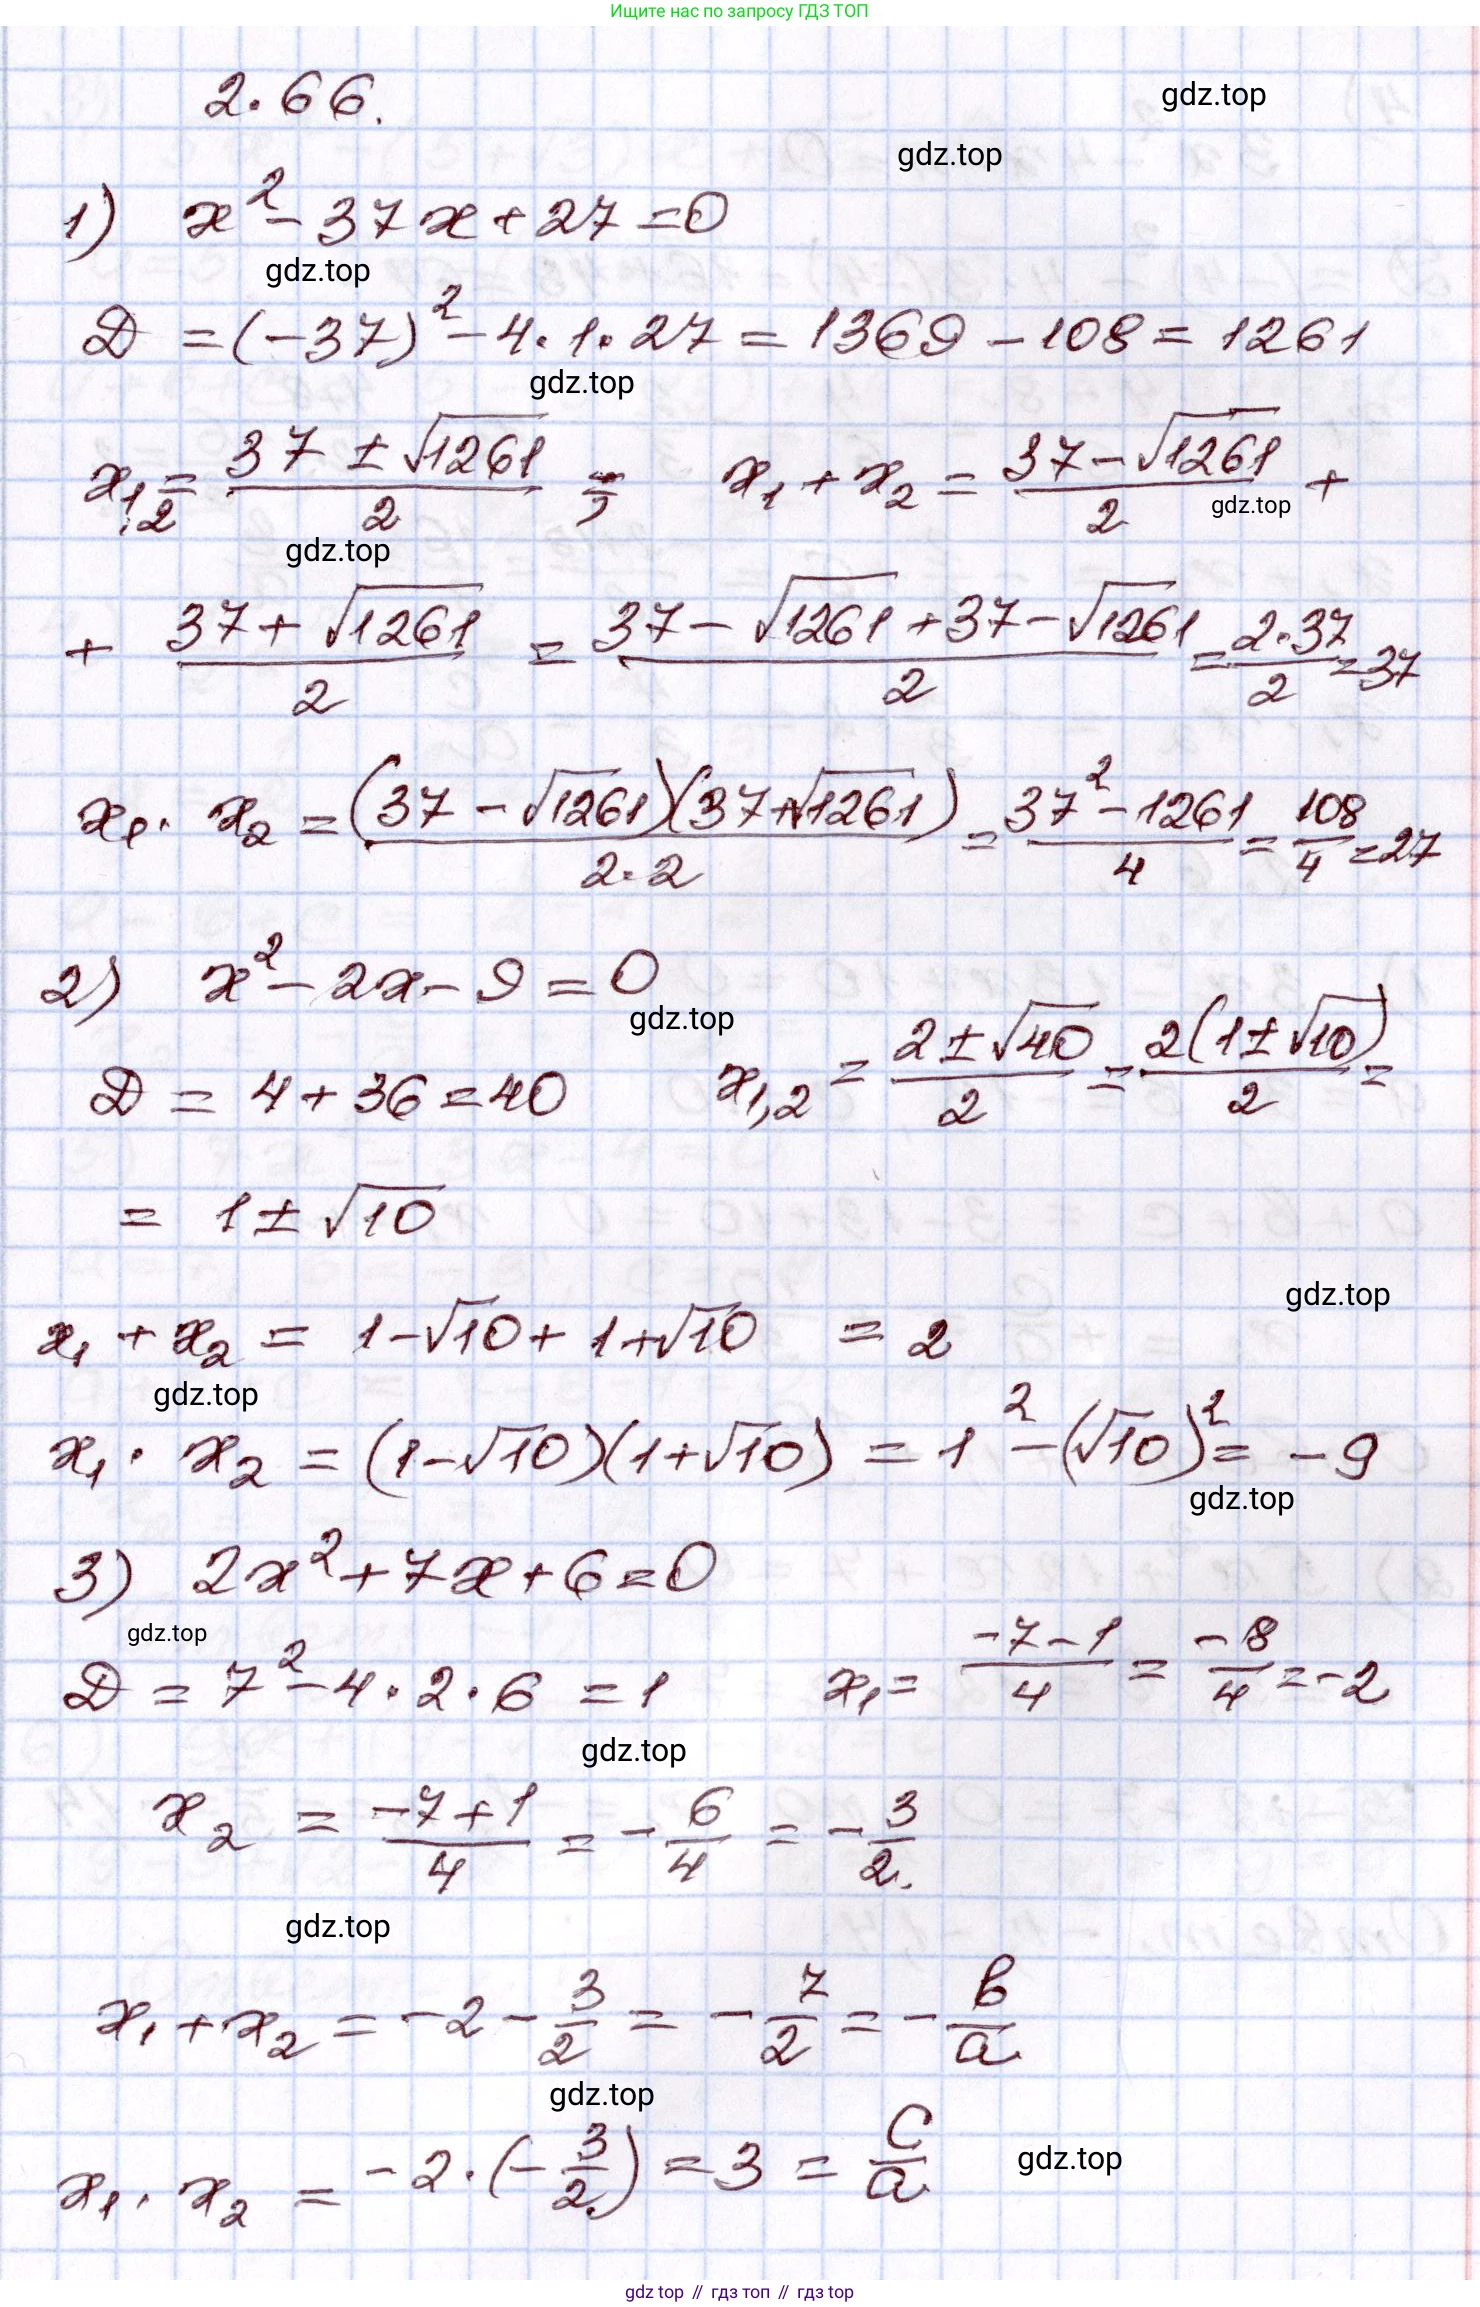 Ищите нас по запросу ГДЗ ТОП
2.66.
gdz.top
gdz.top
1) x² - 37x + 27 = 0
gdz.top
D = (-37)² - 4·1·27 = 1369 - 108 = 1261
gdz.top
x₁,₂ = (37 ± √1261)/2 ; x₁ + x₂ = (37 - √1261)/2 +
gdz.top
gdz.top
+ (37 + √1261)/2 = (37 - √1261 + 37 - √1261)/2 = (2·37)/2 = 37
x₁ · x₂ = ((37 - √1261)(37 + √1261))/(2·2) = (37² - 1261)/4 = 108/4 = 27
2) x² - 2x - 9 = 0
gdz.top
D = 4 + 36 = 40 x₁,₂ = (2 ± √40)/2 = (2(1 ± √10))/2 =
= 1 ± √10
gdz.top
x₁ + x₂ = 1 - √10 + 1 + √10 = 2
gdz.top
x₁ · x₂ = (1 - √10)(1 + √10) = 1² - (√10)² = -9
gdz.top
3) 2x² + 7x + 6 = 0
gdz.top
D = 7² - 4·2·6 = 1 x₁ = (-7-1)/4 = -8/4 = -2
gdz.top
x₂ = (-7+1)/4 = -6/4 = -3/2.
gdz.top
x₁ + x₂ = -2 - 3/2 = -7/2 = -b/a.
gdz.top
x₁ · x₂ = -2·(-3/2.) = 3 = c/a.
gdz.top
gdz top // гдз топ // гдз top